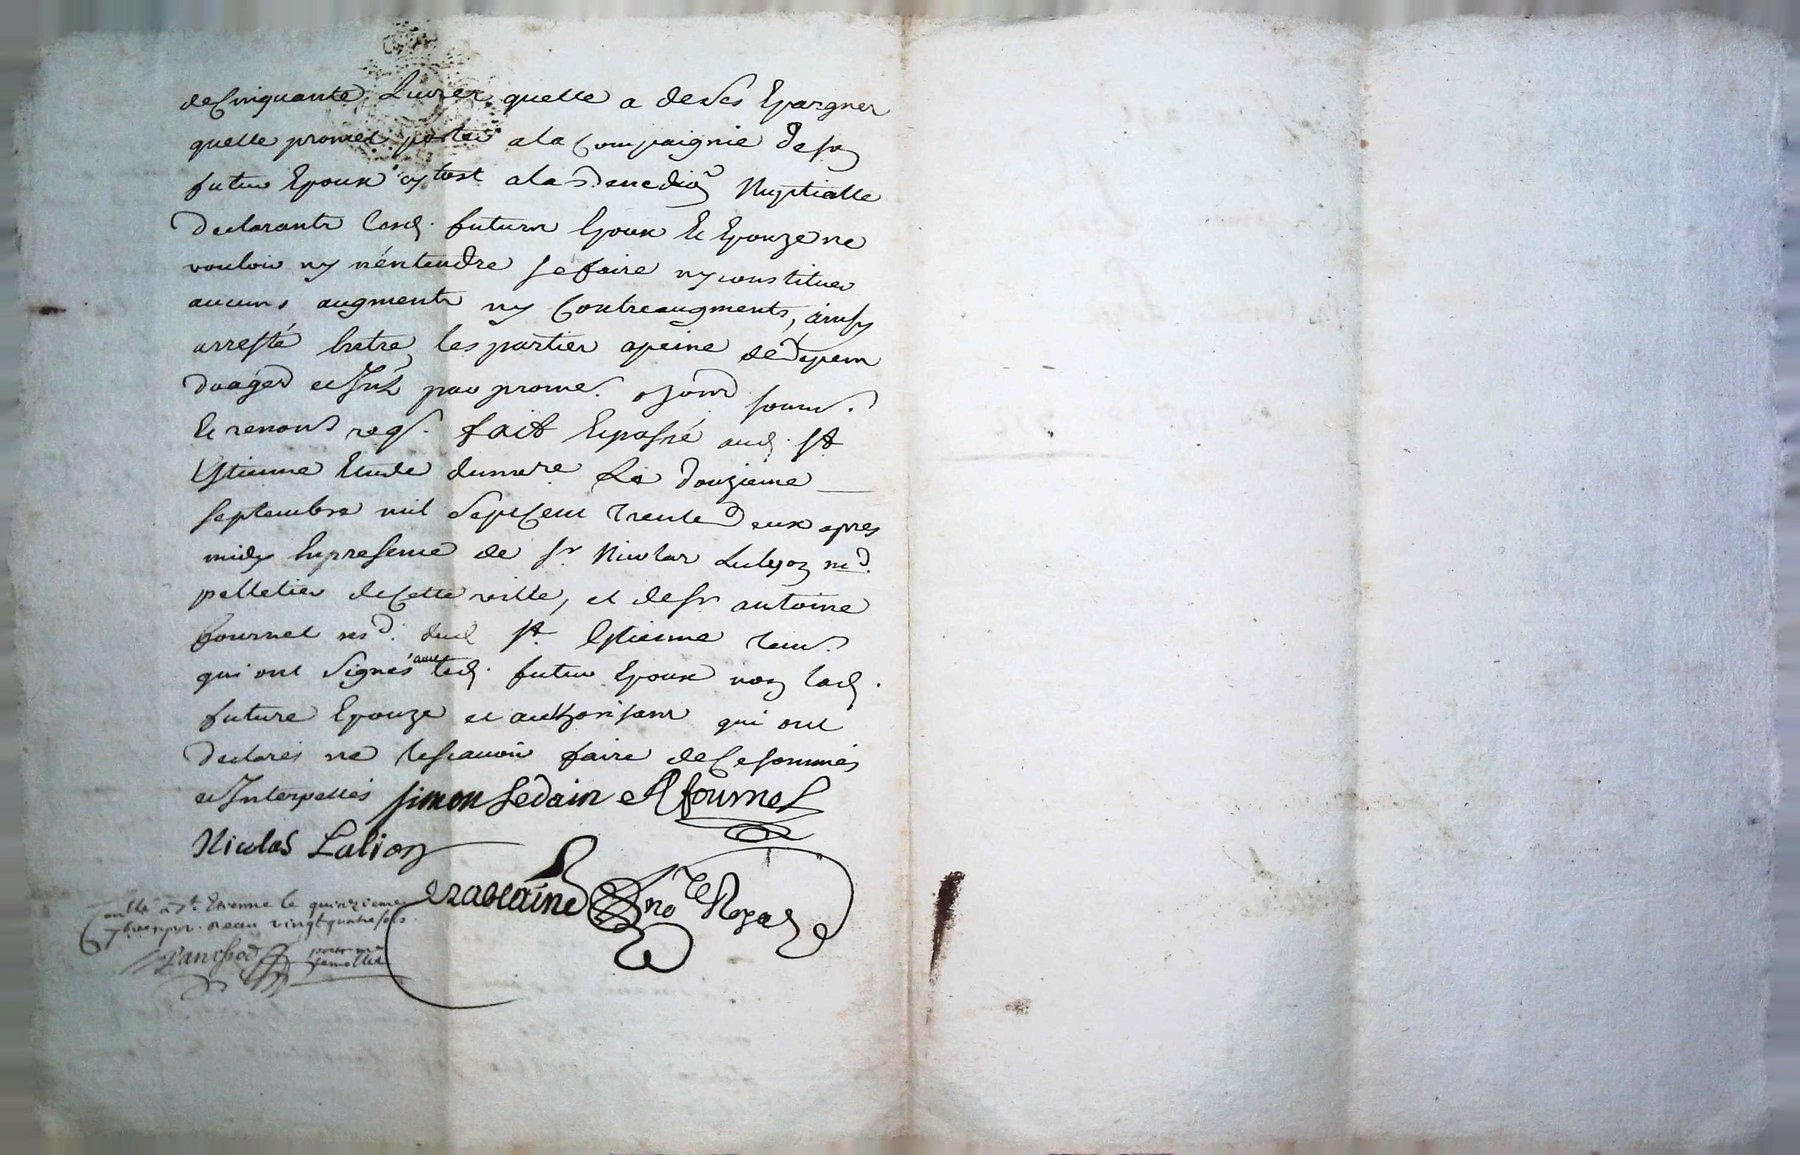 de Cinquante Livres quelle a de ses Epargnes
quelle promet porter a la Compaignie de son
futur Epoux cytost a la Benedion Nuptialle
declarants lesd. futurs Epoux Et Epouze ne
vouloir ny n'éntendre se faire ny constituer
aucuns augments ny Contreaugments, ainsy
arresté Entre les parties a peine de depens
et Int par prome.
Et renons fait Et passé aud. St
Estienne Etude du Le douzieme
septembre mil sept Cent trente deux apres
midy En presence de Sr Nicolas md.
pelletier de Cette ville, et de Sr antoine
fournel md. dud St Estienne
qui ont Signés avec led. futur Epoux non lad.
future Epouze et authorisant qui ont
declarés ne le scavoir faire de Ce sommés
et Interpellés Simon Sedain A fournel
Nicolas Lalion
no Re Royal
a St. Etienne le quinzieme
vingt quatre sols
pour mr